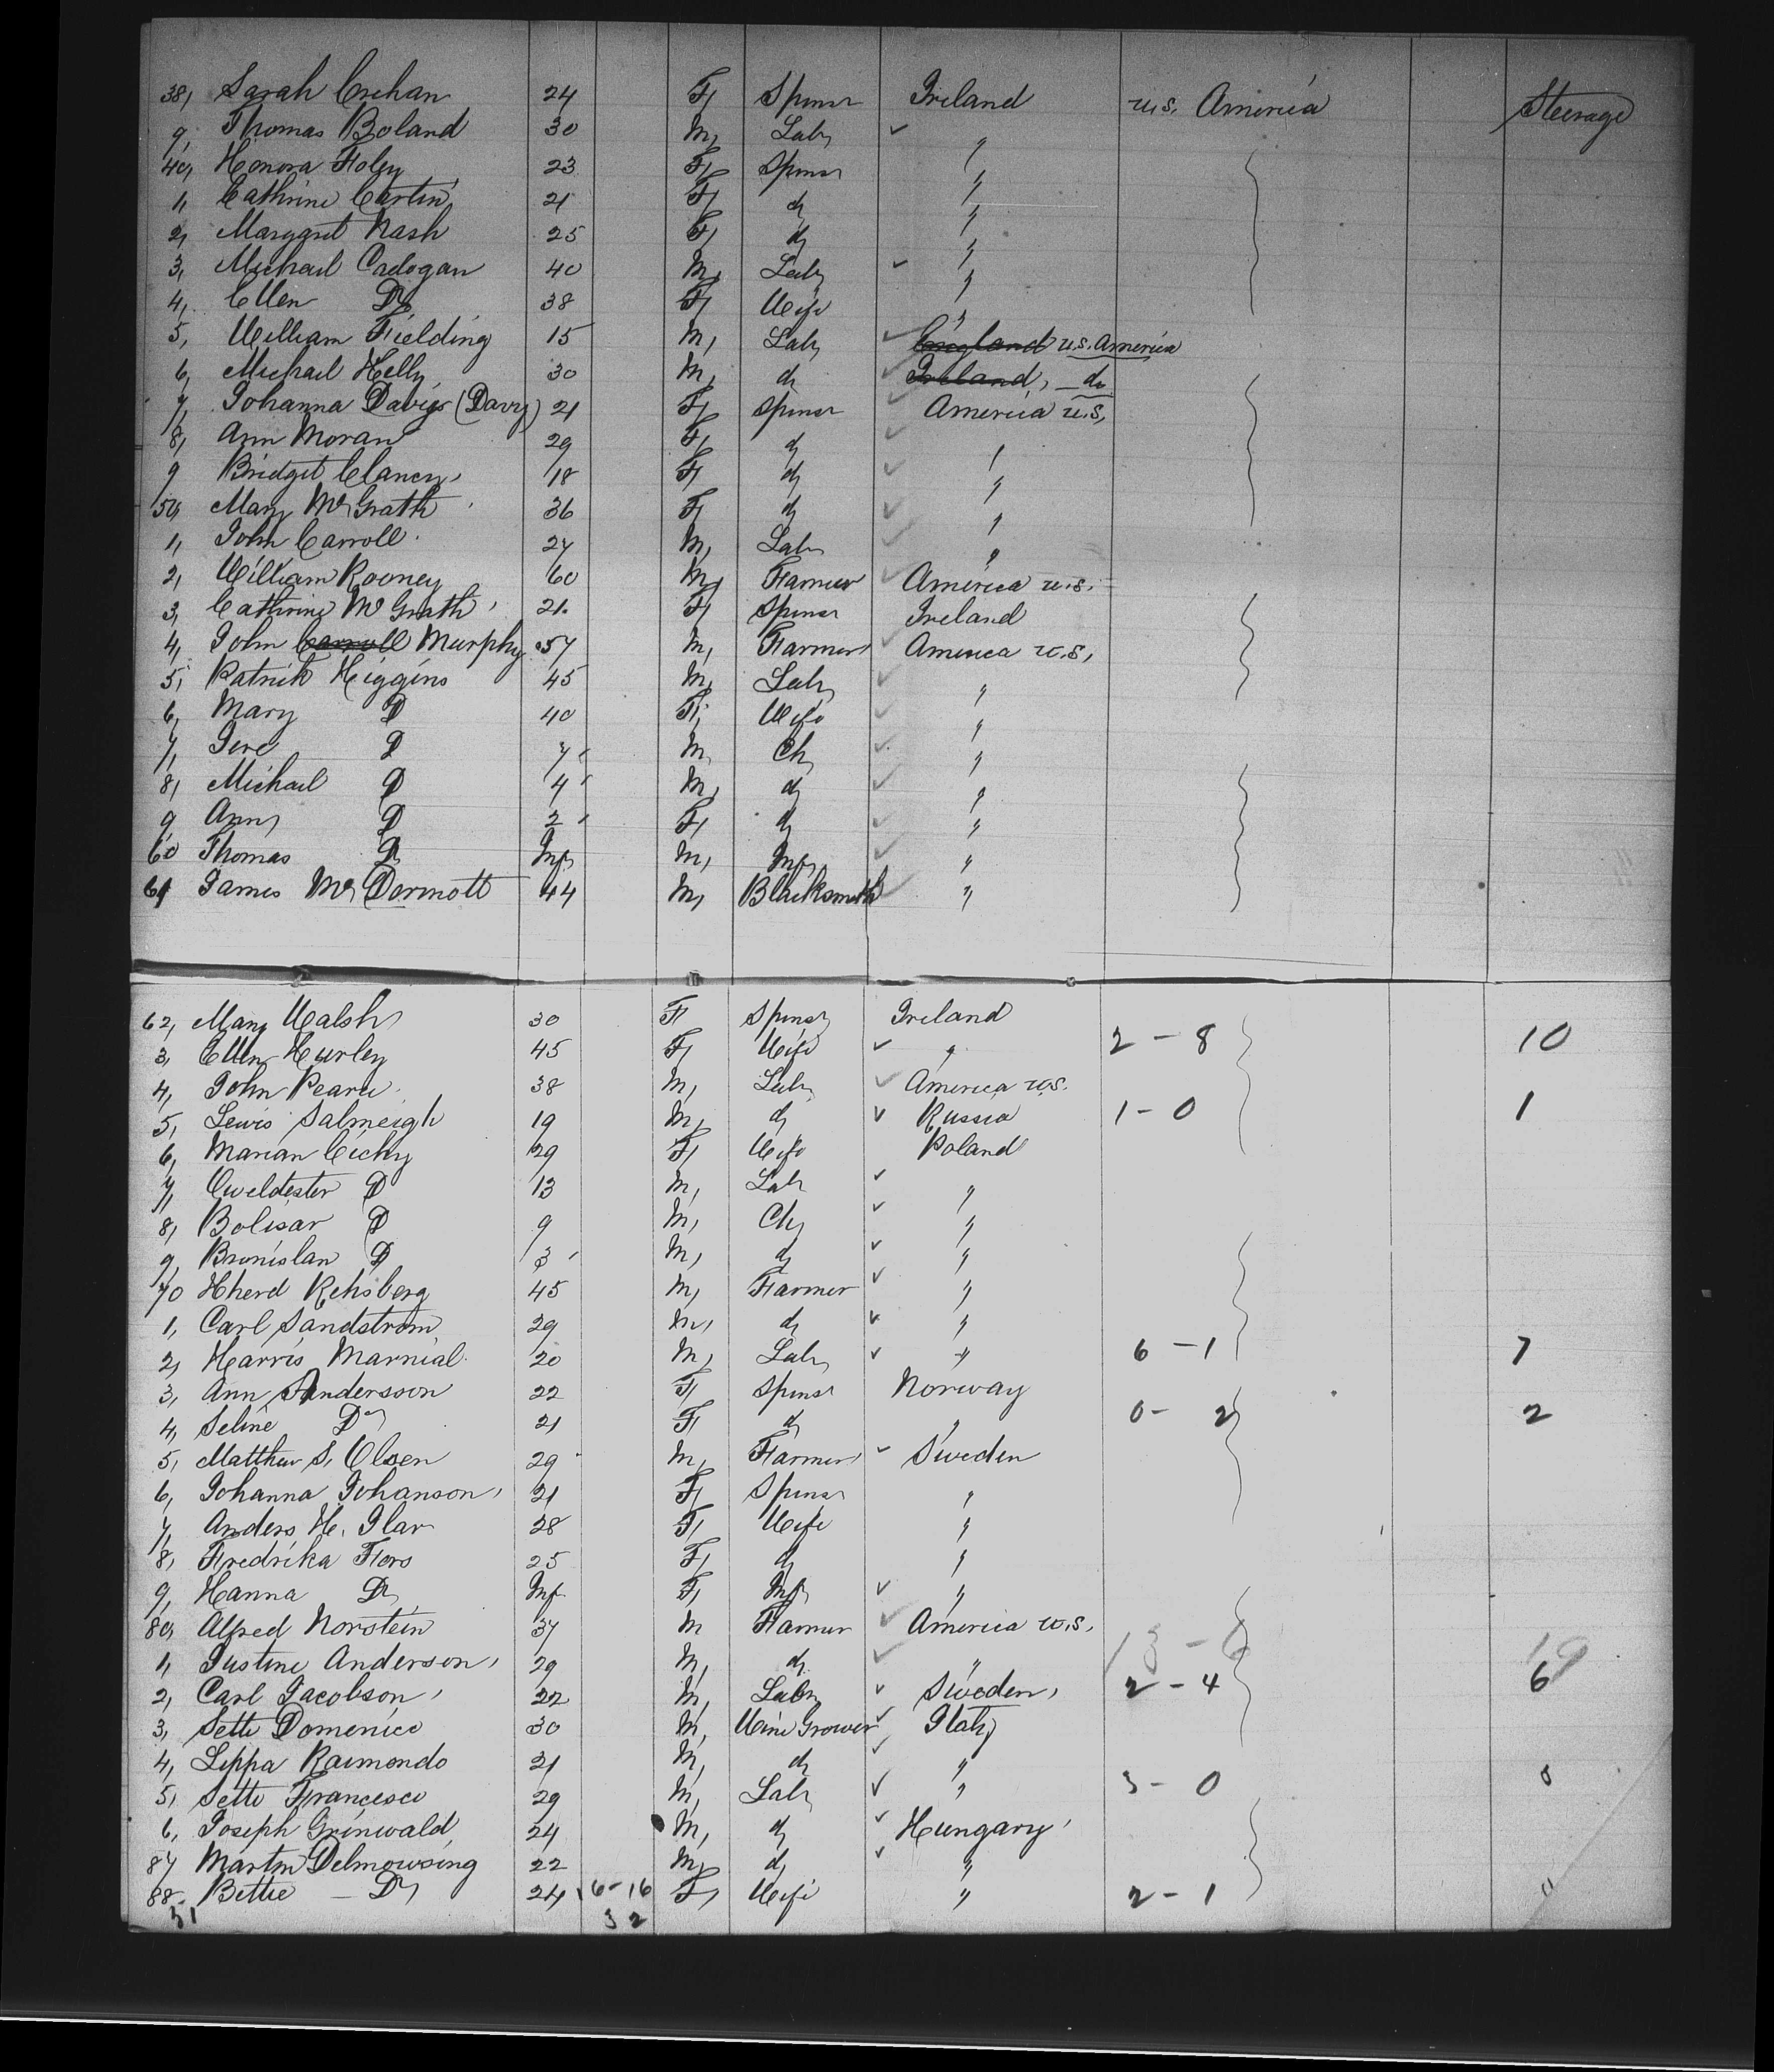 38, Sarah Crehan 24 F, Spinsr Ireland U.S. America Steerage
9, Thomas Boland 30 M, Labr "
40, Honora Foley 23 F, Spinsr "
1, Cathrine Cartin 21 F, do "
2, Margaret Nash 25 F, do "
3, Michael Cadogan 40 M, Labr "
4, Ellen Do 38 F, Wife "
5, William Fielding 15 M, Labr England U.S. America
6, Michael Kelly 30 M, do Ireland, do
7, Johanna Davis (Davy) 21 F, Spinsr America U.S,
8, Ann Moran 29 F, do "
9 Bridget Clancy 18 F, do "
50, Mary McGrath 36 F, do "
1, John Carroll 27 M, Labr "
2, William Rooney 60 M, Farmer America U.S.
3, Cathrine McGrath 21 F, Spinsr Ireland
4, John Carroll Murphy 57 M, Farmer America U.S,
5, Patrick Higgins 45 M, Labr "
6, Mary D 40 F, Wife "
7, D 7 M, Ch, "
8, Michael D 4 M, do "
9 Ann D 2 F, do "
60 Thomas Do Inf M, Inf "
61 James McDermott 44 M, Blacksmith "
62, Mary Walsh 30 F Spinsr Ireland
3, Ellen Hurley 45 F, Wife " 2 - 8 10
4, John Pearce 38 M, Labr America U.S.
5, Lewis Salmeigh 19 M, do Russia 1 - 0 1
6, Marian Cichy 29 F, Wife Poland
7, Oweldester D 13 M, Labr "
8, Bolisar D 9 M, Ch, "
9, Bronislan D 3 M, do "
70 Hherd Rehsberg 45 M, Farmer "
1, Carl Sandstrom 29 M, do "
2, Harris Marnial 20 M, Labr " 6 - 1 7
3, Ann Andersson 22 F, Spinsr Norway
4, Seline Do 21 F, do " 0 - 2 2
5, Matthew S. Olsen 29 M, Farmer Sweden
6, Johanna Johanson 21 F, Spinsr "
7, Anders H. 28 F, Wife "
8, Fredrika Fors 25 F, do "
9, Hanna Do Inf F, Inf "
80, Alfred Norstein 37 M Farmer America U.S.
1, Justine Anderson 29 M, do " 13 - 6 19
2, Carl Jacobson 22 M, Labr Sweden, 2 - 4 6
3, Sette Domenico 30 M, Wine Grower Italy
4, Lippa Raimondo 21 M, do "
5, Sette Francesco 29 M, Labr " 3 - 0
6, Joseph Grinwald 24 M, do Hungary
87 Martin Delmowsing 22 M, do "
88 Bettie - Do 24 6-16 F, Wife " 2 - 1
31 32